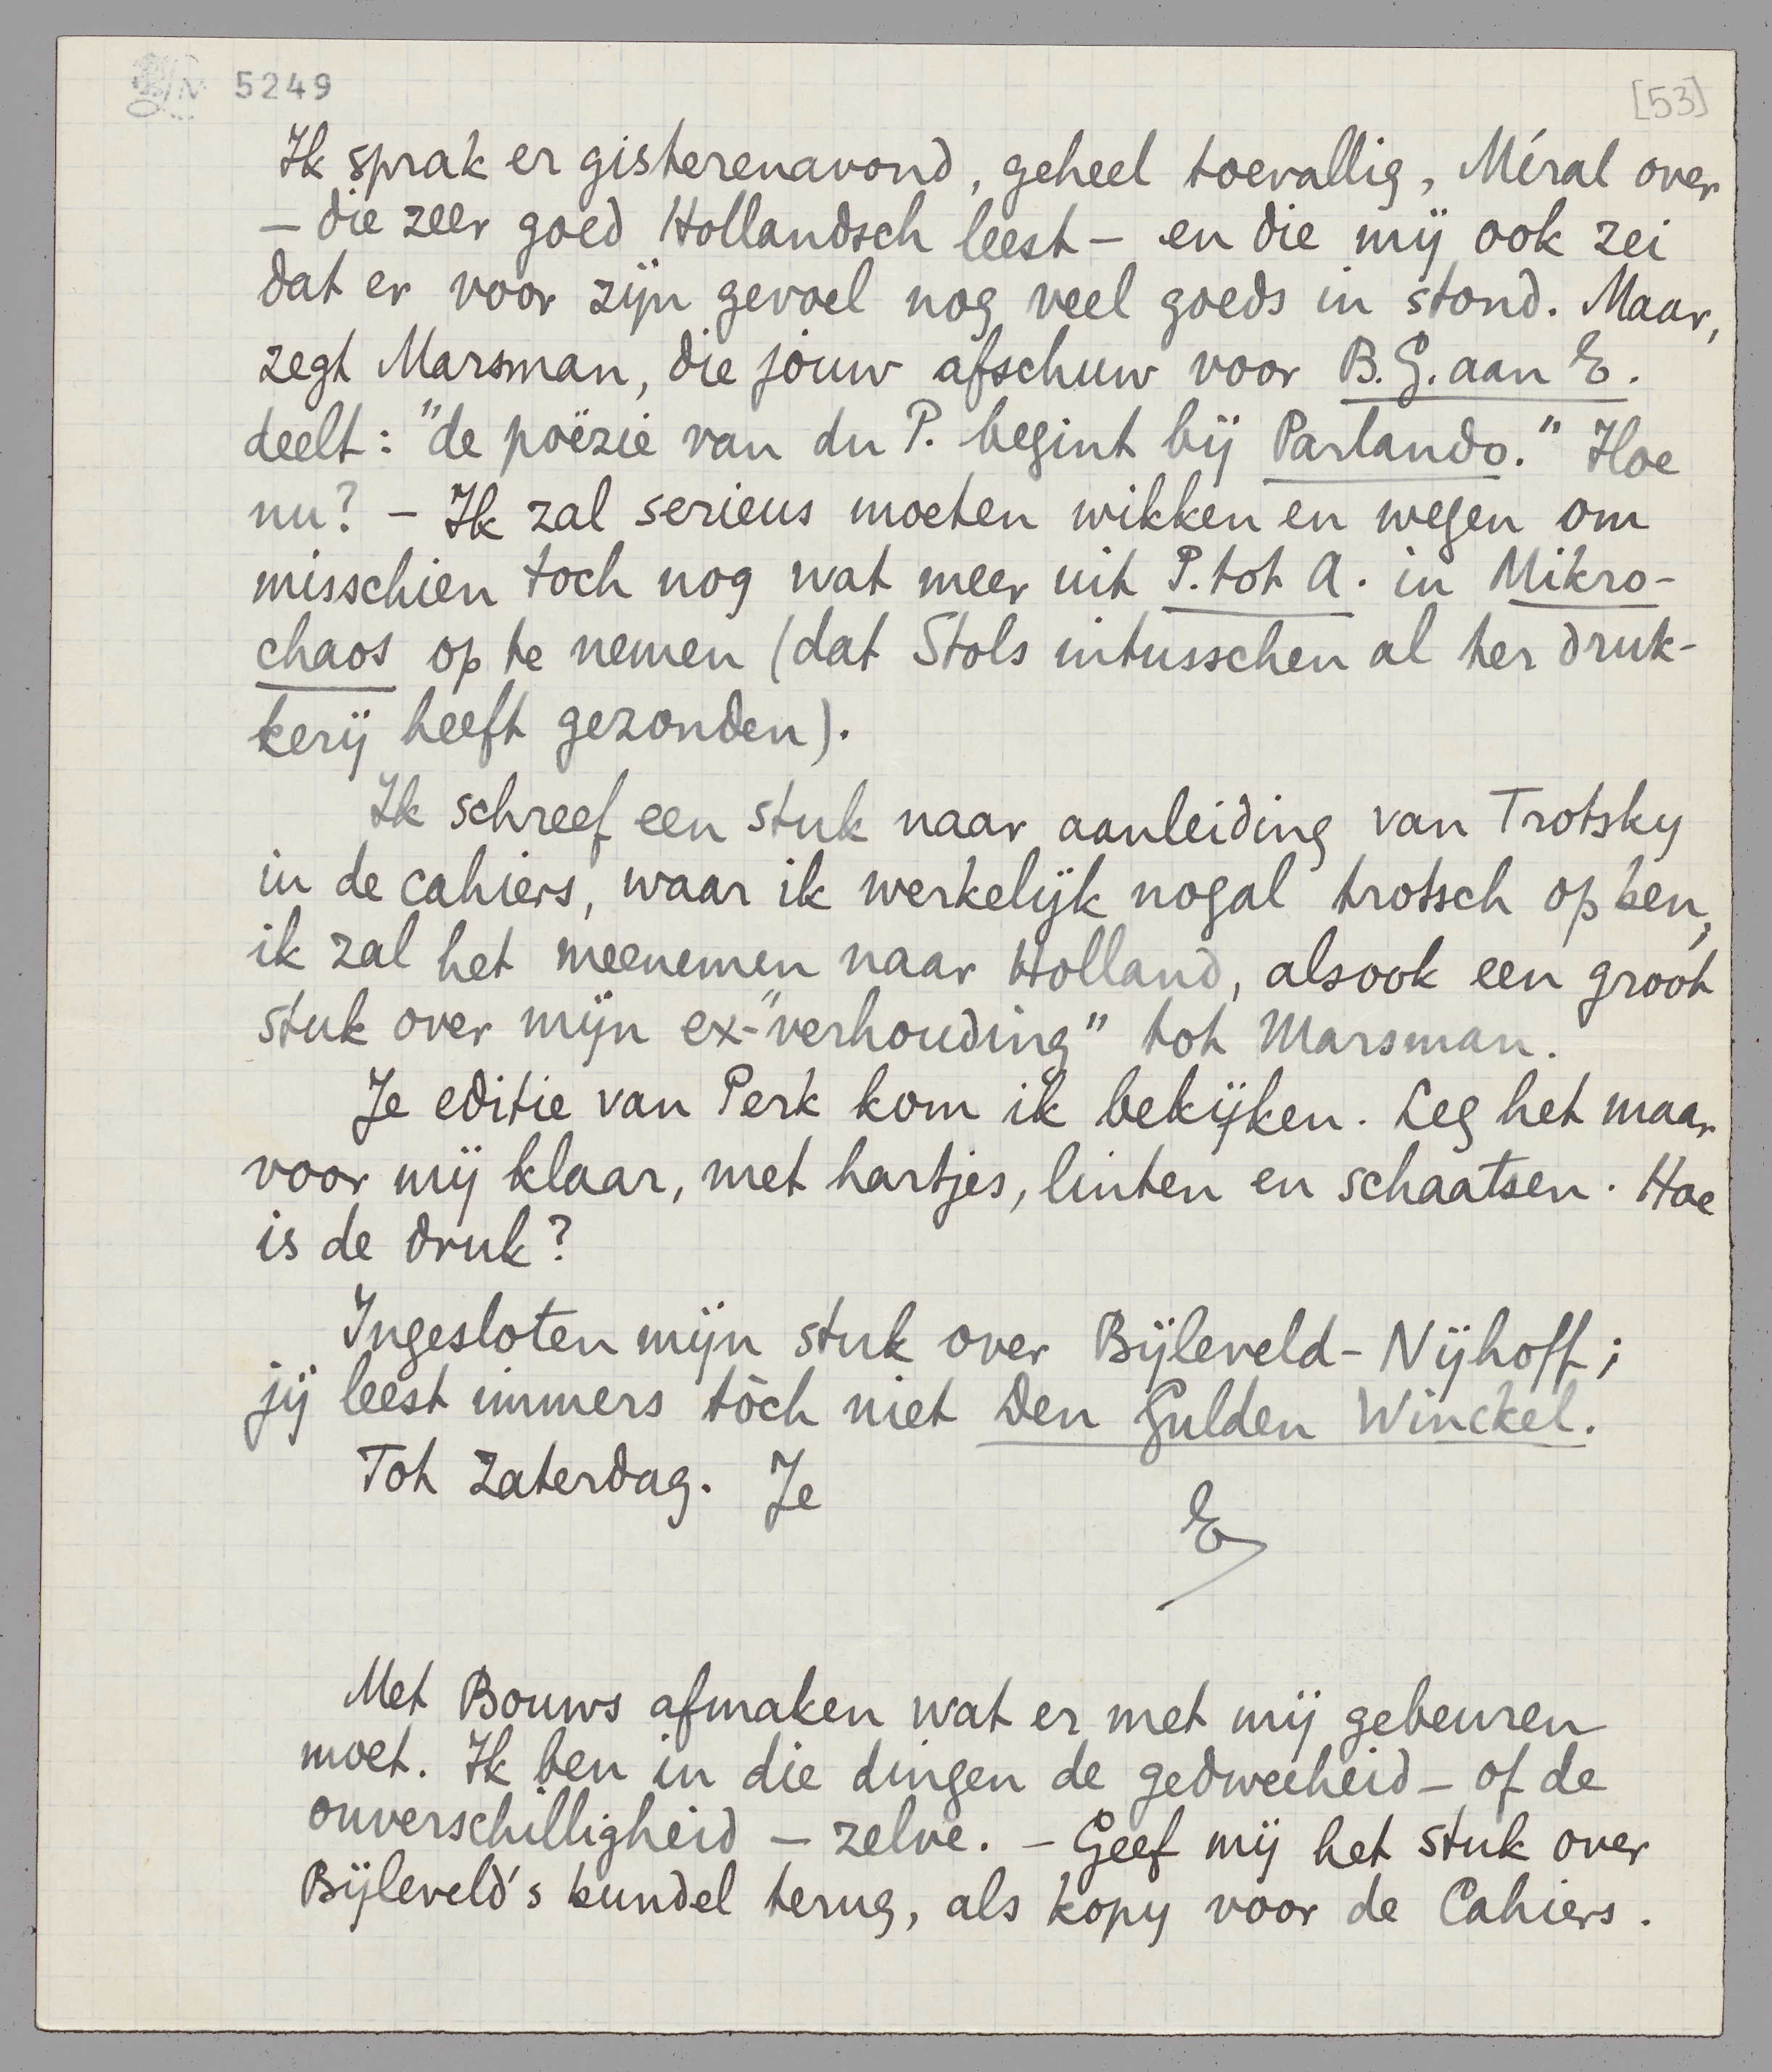 5249
[53]
Ik sprak er gisterenavond, geheel toevallig, Méral over
– die zeer goed Hollandsch leest – en die mij ook zei
dat er voor zijn gevoel nog veel goeds in stond. Maar,
zegt Marsman, die jouw afschuw voor B.G. aan E.
deelt: "de poëzie van du P. begint bij Parlando." Hoe
nu? – Ik zal serieus moeten wikken en wegen om
misschien toch nog wat meer uit P. tot A. in Mikro-
chaos op te nemen (dat Stols intusschen al ter druk-
kerij heeft gezonden).
Ik schreef een stuk naar aanleiding van Trotsky
in de cahiers, waar ik werkelijk nogal trotsch op ben,
ik zal het meenemen naar Holland, alsook een groot
stuk over mijn ex-"verhouding" tot Marsman.
Je editie van Perk kom ik bekijken. Leg het maar
voor mij klaar, met hartjes, linten en schaatsen. Hoe
is de druk?
Ingesloten mijn stuk over Bijleveld-Nijhoff;
jij leest immers tòch niet Den Gulden Winckel.
Tot Zaterdag. Je
E
Met Bouws afmaken wat er met mij gebeuren
moet. Ik ben in die dingen de gedweeheid – of de
onverschilligheid – zelve. – Geef mij het stuk over
Bijleveld's bundel terug, als kopy voor de Cahiers.